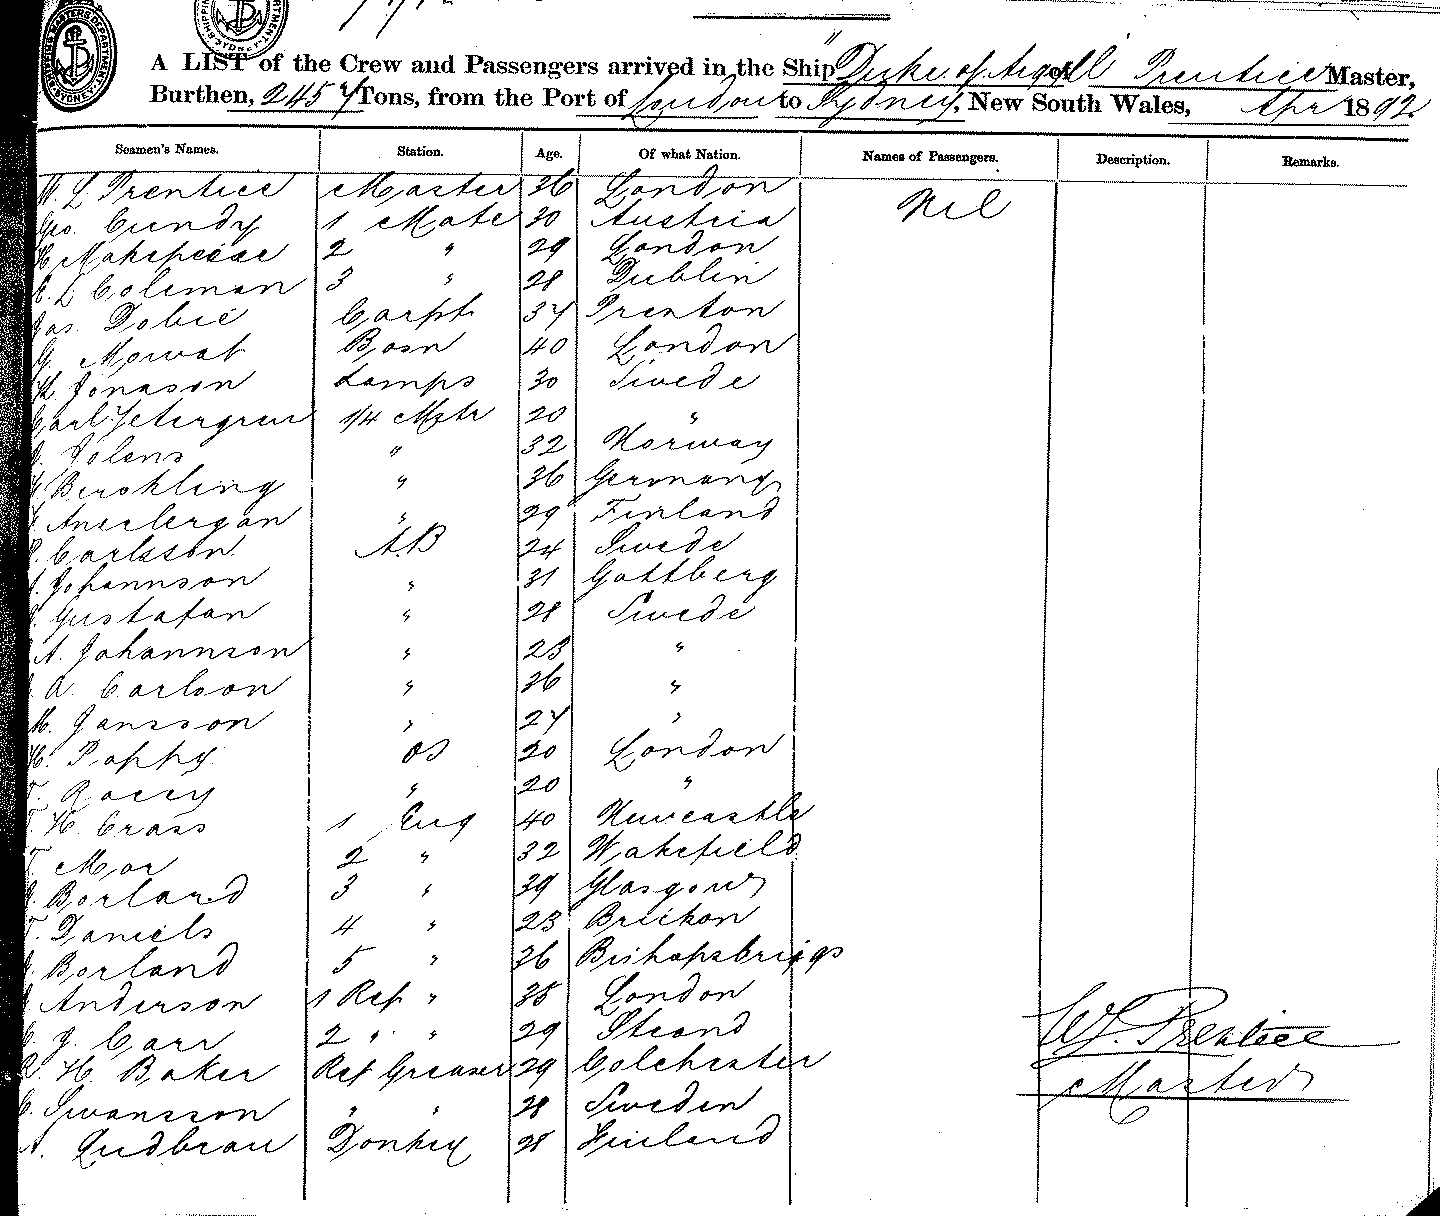 A LIST of the Crew and Passengers arrived in the Ship "Duke of Argyll Prentice Master,
Burthen, 2457 Tons, from the Port of London to Sydney, New South Wales, Apr 1892
Seamen's Names. Station. Age. Of what Nation. Names of Passengers. Description. Remarks.
W. L Prentice Master 36 London Nil
Geo. Cundy 1 Mate 30 Austria
H Makepeese 2 " 29 London
L Coleman 3 " 28 Dublin
Jas. Dobie Carpt 37 Prenton
G. Mowat Bosn 40 London
Jonason Lamps 30 Swede
Carl 1/4 Mstr 20 "
Jolens " 32 Norway
" 36 Germany
" 29 Finland
Carlsson AB 24 Swede
Johannson " 31 Gottberg
Gustafan " 28 Swede
A. Johannson " 23 "
A. Carlson " 26 "
Jansson " 27 "
H. Poppy OS 20 London
T. Racey " 20 "
T. H. Crass 1 Eng 40 Newcastle
T. Mor 2 " 32 Wakefield
Borland 3 " 39 Glasgow
T. Daniels 4 " 23 Brickon
Borland 5 " 36 Bishopsbriggs
Anderson 1 Ref " 35 London
J. Carr 2 " " 29 Strand
R. H. Baker Ref Greaser 29 Colchester
C. Swansson " " 28 Sweden
A. Donkey 28 Finland
W. L. Prentice
Master